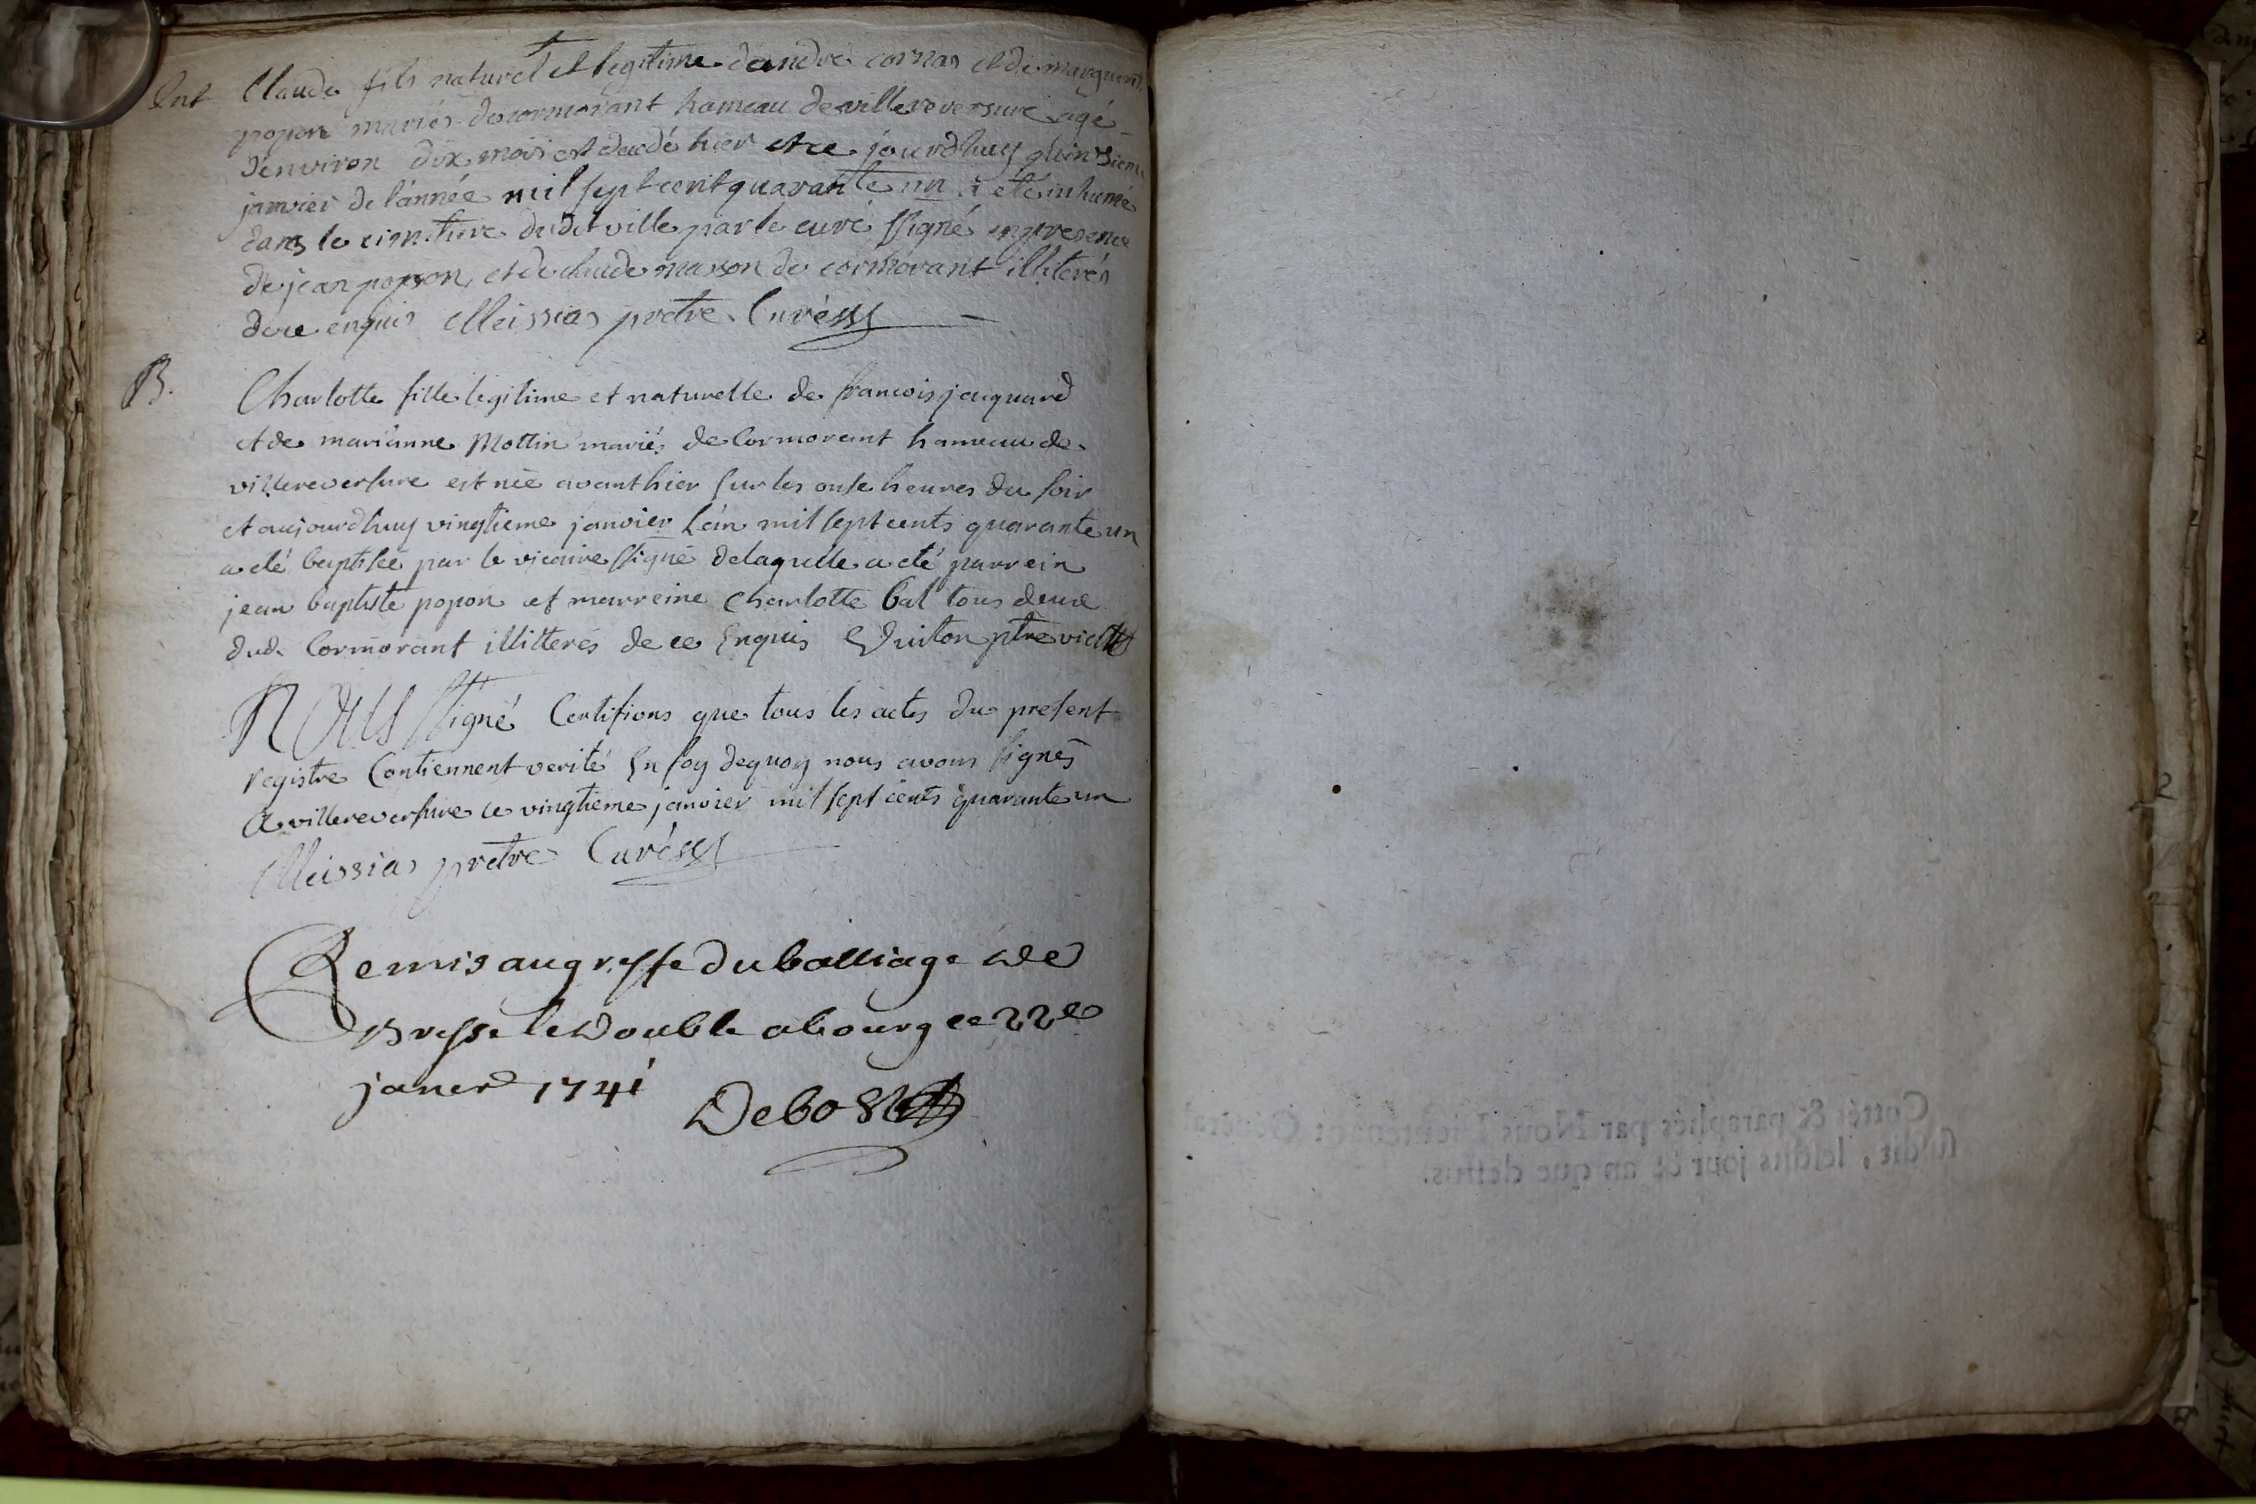 Ent Claude fils naturel et legitime dandré cornas et de marguerite
popon mariés de cormorant hameau de villereversure agé
d'environ dix mois est decedé hier et ce jourdhuy quinzieme
janvier de l'année mil sept cent quarante un a été inhumé
dans le cimetiere dudit ville par le curé ssigné en presence
de jean popon et de claude mason de cormorant illiterés
de ce enquis Meissias pretre Curé
B. Charlotte fille legitime et naturelle de francois jaquard
et de marianne Mottin mariés de Cormorant hameau de
villereversure est née avanthier sur les onse heures du soir
et aujourdhuy vingtieme janvier l'an mil sept cents quarante un
a eté baptisée par le vicaire ssigné de laquelle a eté parrein
jean baptiste popon et marreine Charlotte bal tous deux
dud. Cormorant illitterés de ce Enquis Guiton ptre vic
Nous ssigné Certifions que tous les actes du present
registre Contiennent verité En foy dequoy nous avons signés
A villereversure ce vingtieme janvier mil sept cents quarante un
Meissias pretre Curé
Remis au greffe du balliage de
Bresse le double a bourg ce 22e
janer 1741 Debost
Cottés & paraphés par Nous Lieutenant Général
susdit, lesdits jour & an que dessus.